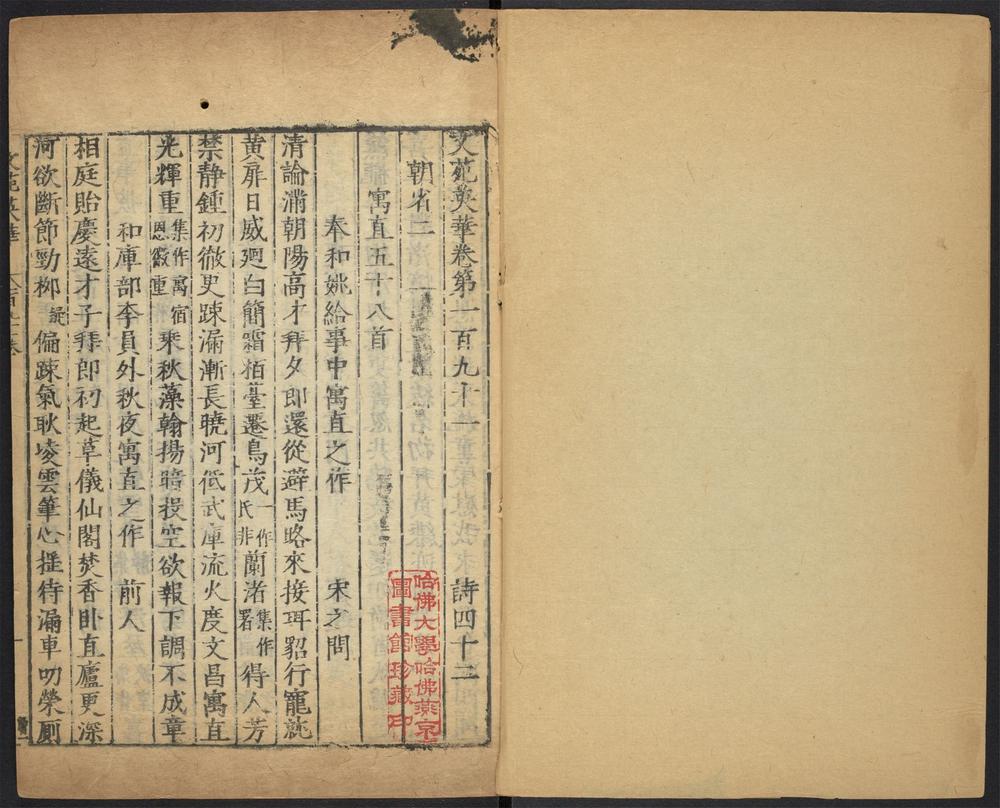 文苑英華卷第一百九十一 詩四十二
朝省二
寓直五十八首
奉和姚給事中寓直之作 宋之問
清論滿朝陽高才拜夕郎還從避馬路來接珥貂行寵就
黃扉日威廻白簡霜栢臺遷鳥茂一作氏非蘭渚集作署得人芳
禁静鍾初徹更踈漏漸長曉河低武庫流火度文昌寓直
光輝重集作寓宿恩徽重乘秋藻翰揚暗投空欲報下調不成章
和庫部李員外秋夜寓直之作 前人
相庭貽慶遠才子拜郎初起草儀仙閣焚香卧直廬更深
河欲斷節勁柳疑偏踈氣耿凌雲筆心揺待漏車叨榮厠
文苑英華
哈佛大學哈佛燕京
圖書館珍藏印